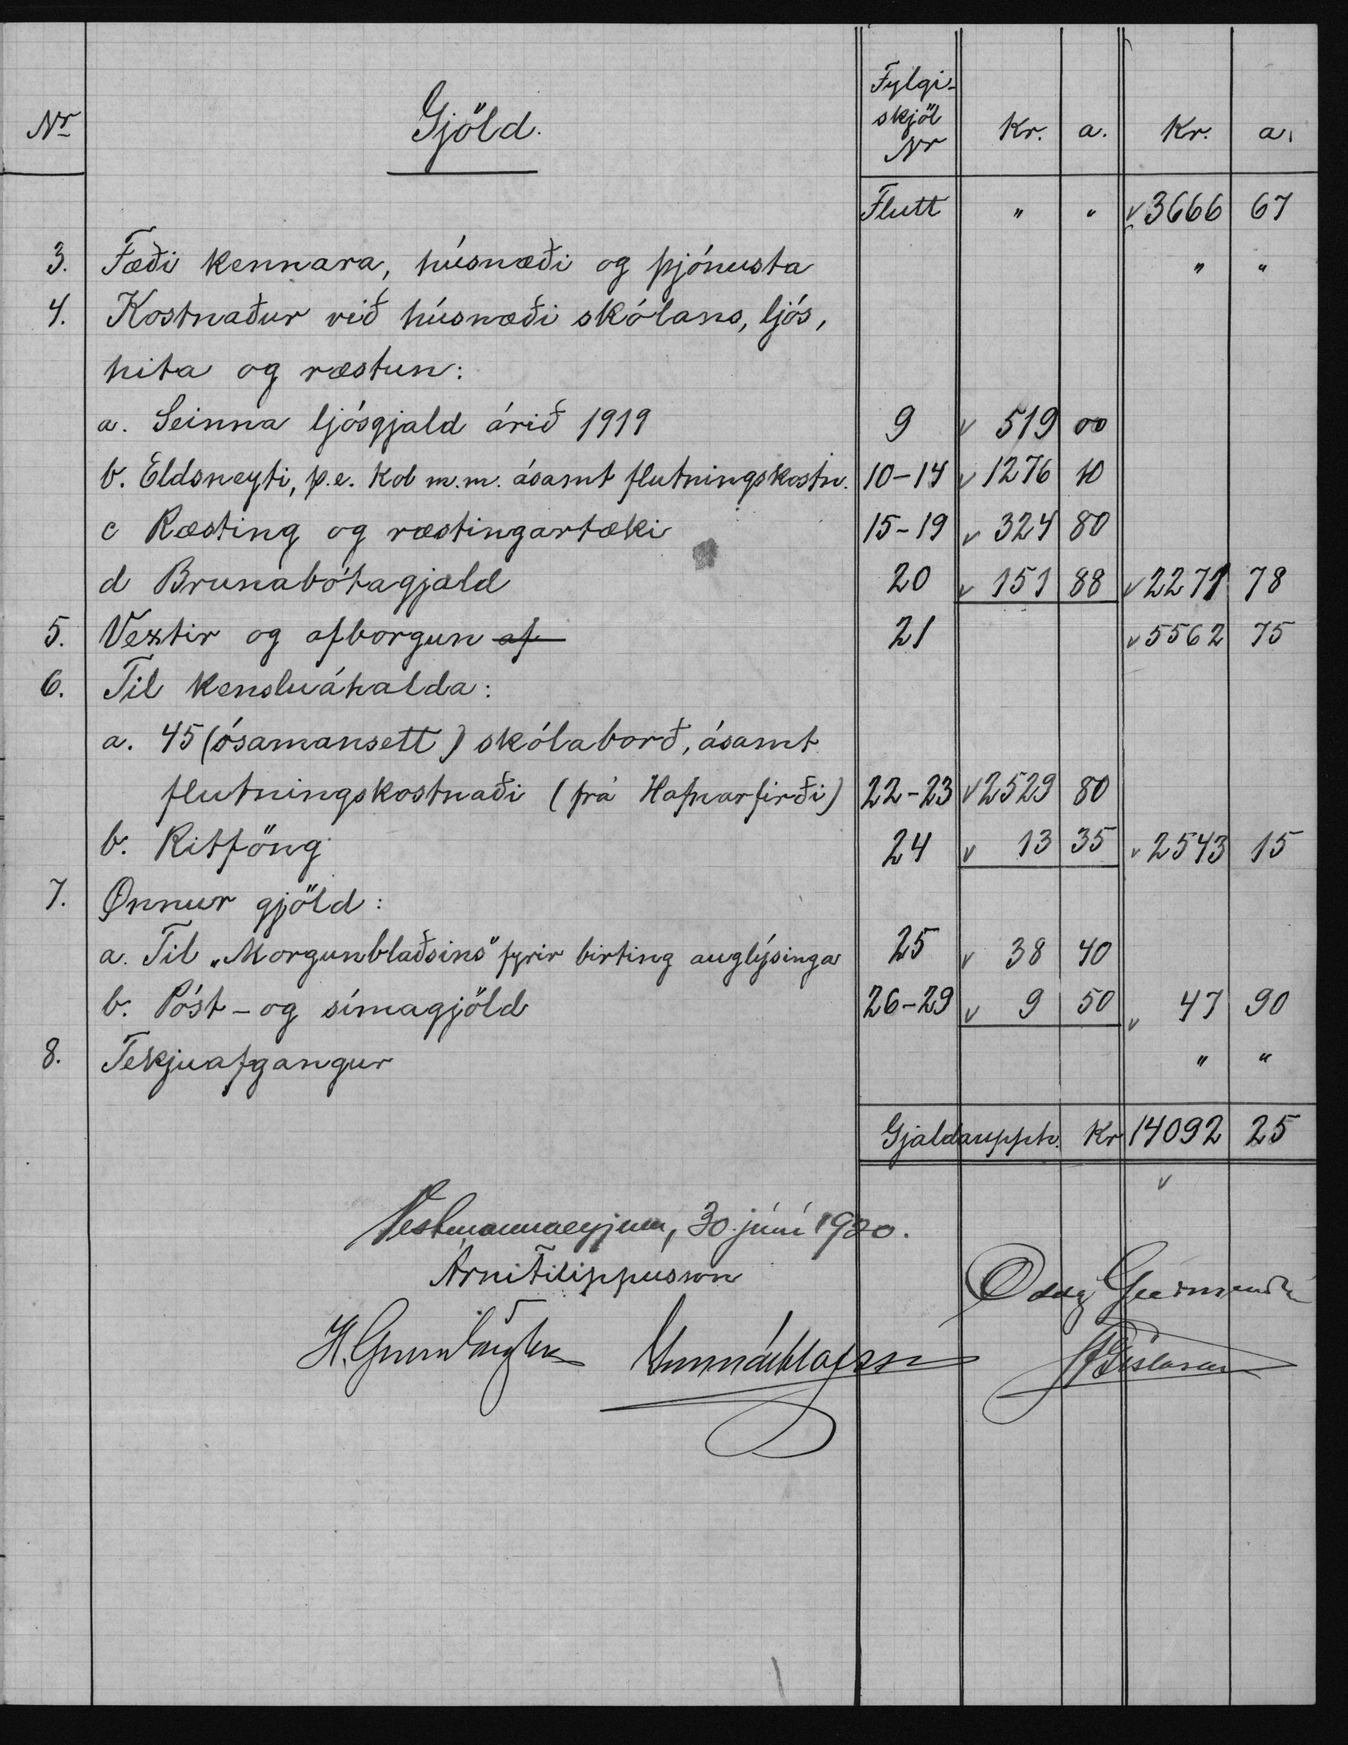 Nr Gjöld. Fylgi- skjöl Nr Kr. a. Kr. a.
Flutt " " 3666 67
3. Fæði kennara, húsnæði og þjónusta " "
4. Kostnaður við húsnæði skólans, ljós,
hita og ræstun:
a. Seinna ljósgjald árið 1919 9 519 00
b. Eldsneyti, þ.e. kol m.m. ásamt flutningskostn. 10-14 1276 10
c Ræsting og ræstingartæki 15-19 324 80
d Brunabótagjald 20 151 88 2271 78
5. Vextir og afborgun af 21 5562 75
6. Til kensluáhalda:
a. 45 (ósamansett) skólaborð, ásamt
flutningskostnaði (frá Hafnarfirði) 22-23 2529 80
b. Ritföng 24 13 35 2543 15
7. Önnur gjöld:
a. Til „Morgunblaðsins" fyrir birting auglýsinga 25 38 40
b. Póst- og símagjöld 26-29 9 50 47 90
8. Tekjuafgangur " "
Gjaldaupph. Kr 14092 25
Vestmannaeyjum, 30. júní 1920.
Árni Filippusson
H. Gunnlaugsson